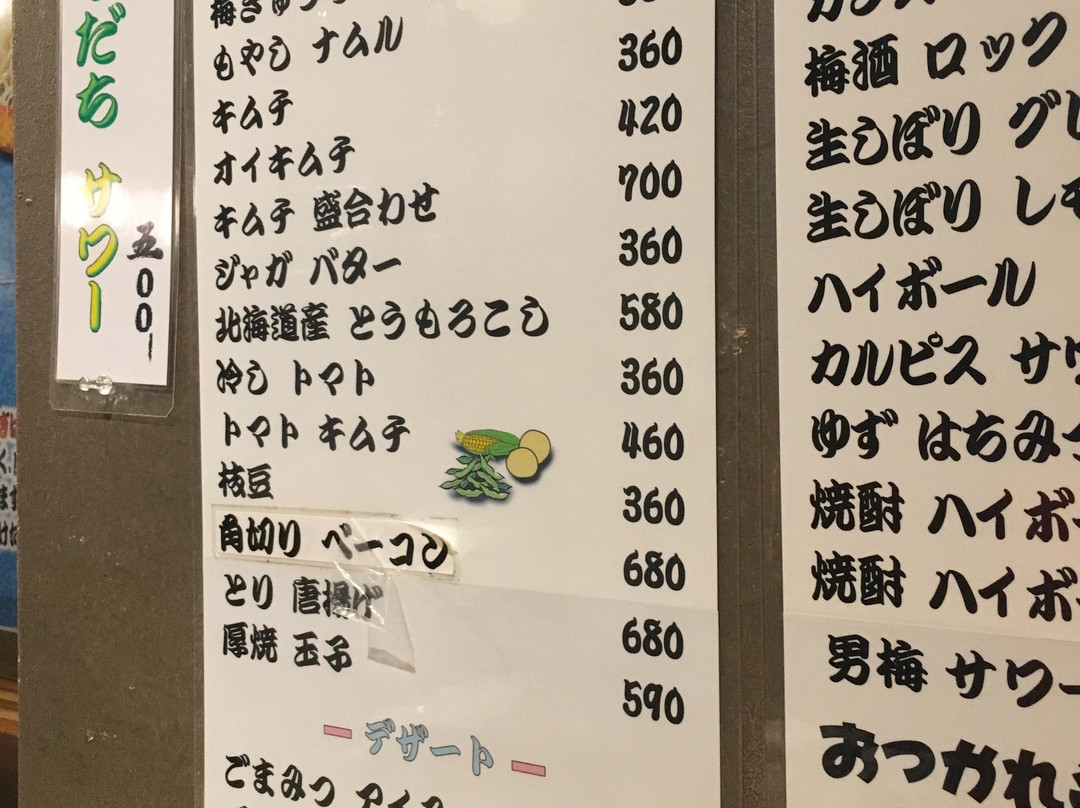 だち サワー
五００
梅きゅうり
もやし ナムル
360
キムチ
420
オイキムチ
700
キムチ 盛合わせ
360
ジャガ バター
580
北海道産 とうもろこし
360
冷し トマト
460
トマト キムチ
360
枝豆
680
角切り ベーコン
680
とり 唐揚げ
590
厚焼 玉子
ー デザート ー
ごまみつ アイス
梅酒 ロック
生しぼり グレ
生しぼり レモ
ハイボール
カルピス サワ
ゆず はちみつ
焼酎 ハイボ
焼酎 ハイボ
男梅 サワー
おつかれ